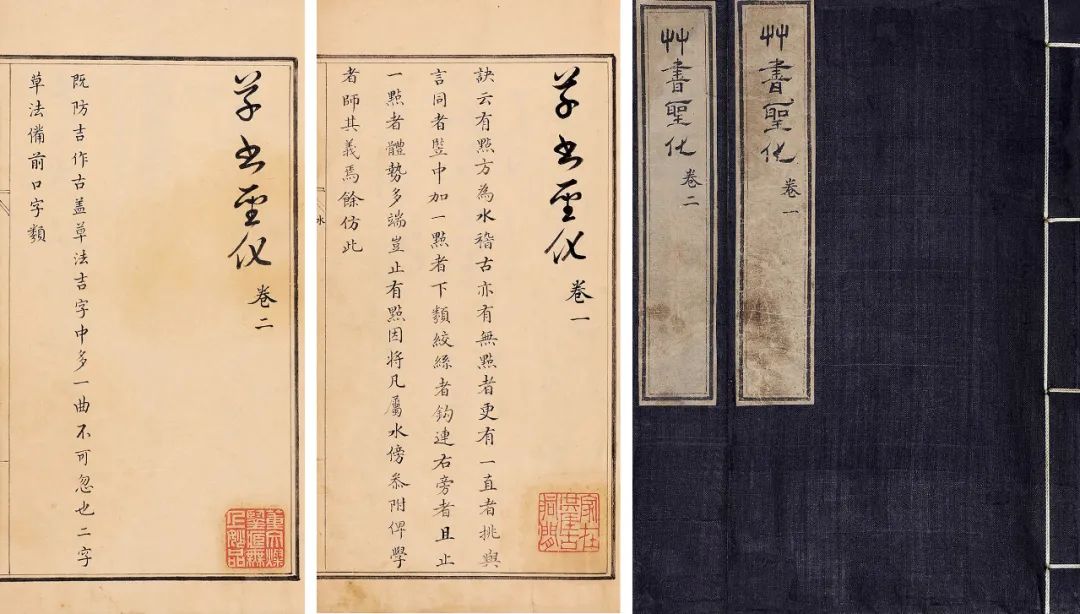 艸書聖化 卷一
艸書聖化 卷二
草書聖化 卷一
訣云有點方為水稽古亦有無點者更有一直者挑與
言同者豎中加一點者下類絞絲者鈎連右旁者且止
一點者體勢多端豈止有點因將凡屬水傍叅附俾學
者師其義焉餘仿此
水
家在洪厓古洞間
草書聖化 卷二
既防吉作古盖草法吉字中多一曲不可忽也二字
草法備前口字類